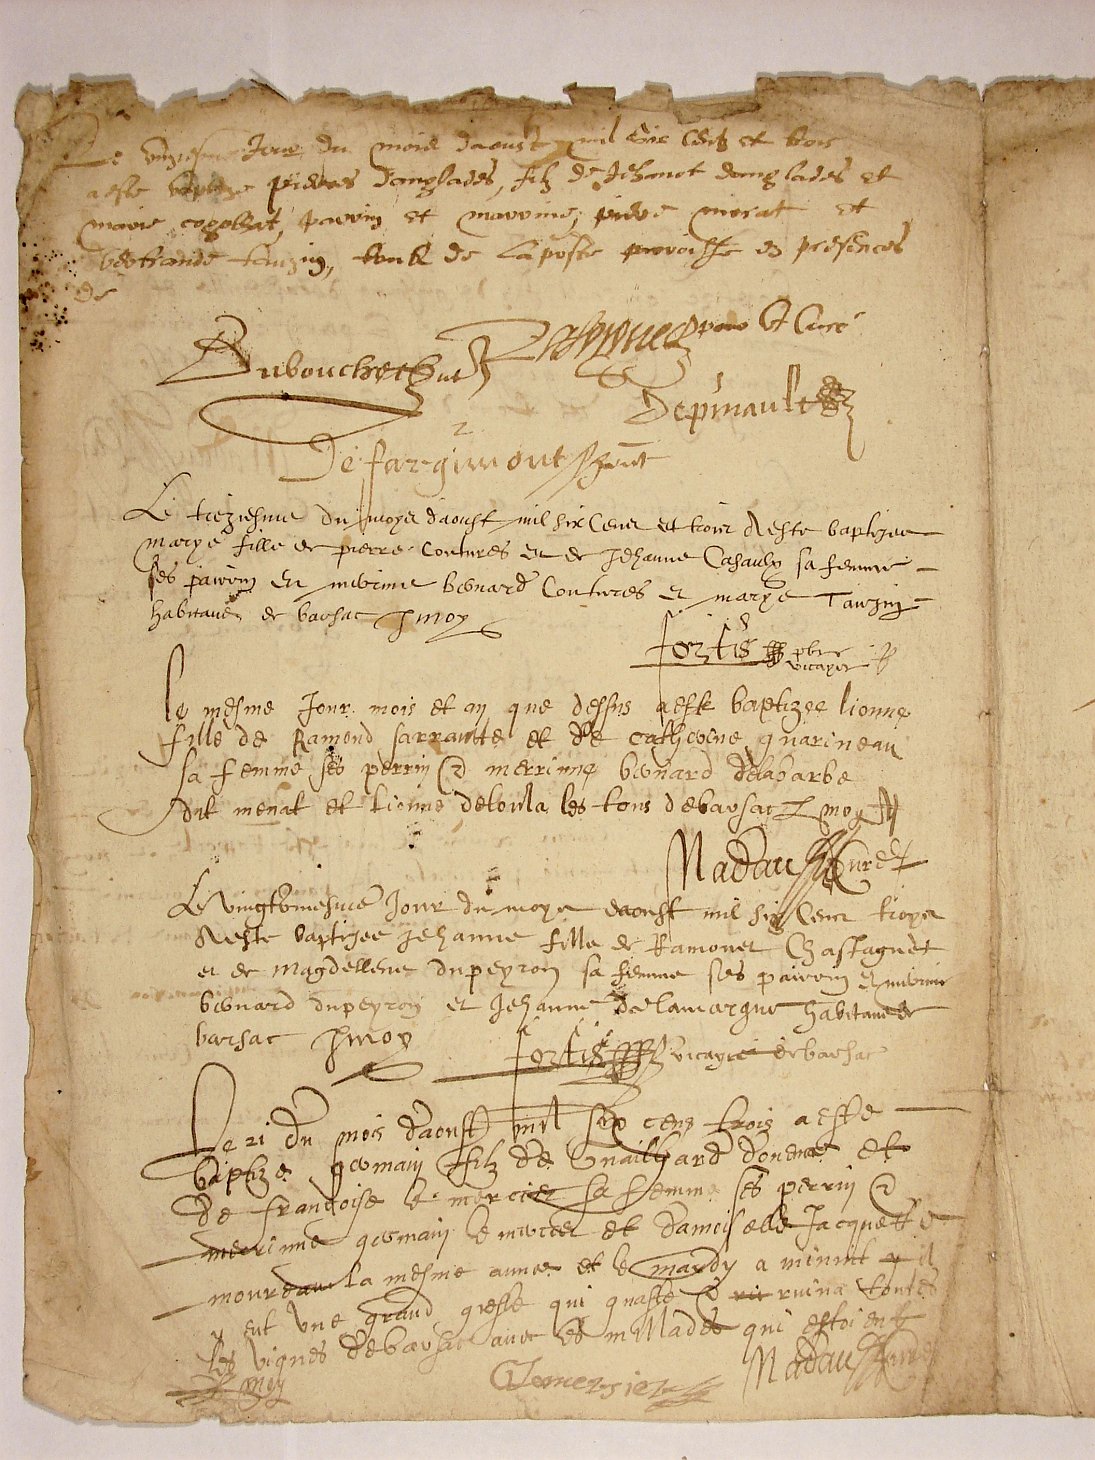 Le jour du mois daoust mil six cens et trois
a este baptize pierres danglades, filz de Jehanot danglades et
marie parrin et marrine, pierre morat et
bertrande tauzin, touts de la poste paroisse es presences
de
pbre et Curé
Duboucher
2
Defargimont pnt
Le treziesme du moys daoust mil six Cens et trois A este baptizee
marye fille de pierre Coutures et de Jehanne Casaulx sa femme
ses pairrin et merrine bernard Coutures et marye Tauzin
habitans de barsac p moy
fortis pbre
vicayre
le mesme Jour mois et an que dessus a este baptizee lionne
fille de Ramond sarraute et de catherine quarineau
sa femme ses perrin & merrinne bernard delabarbe
dit menat et lionne detoula les tous debarsac p moy
Nadau Curé
Le vingt Jour du moys daoust mil six Cens troys
A este baptizee Jehanne fille de Ramonet Chastagnet
et de magdellene dupeyron sa femme ses pairrin et merrine
bernard dupeyron et Jehanne de Lamargue habitans de
barsac p moy
fortis vicayre de barsac
Le 21 du mois daoust mil six cens trois a este
baptize germain filz de guailhard donene et
de françoise le mercier sa femme ses perrin &
merrinne germain le mercier et damoiselle Jacquette
moureau la mesme annee et le mardy a minuit
y eut une grand gresle qui guasta & ruina toutes
les vignes debarsac avec les millades qui estoient
p moy
Lemersier
Nadau Curé